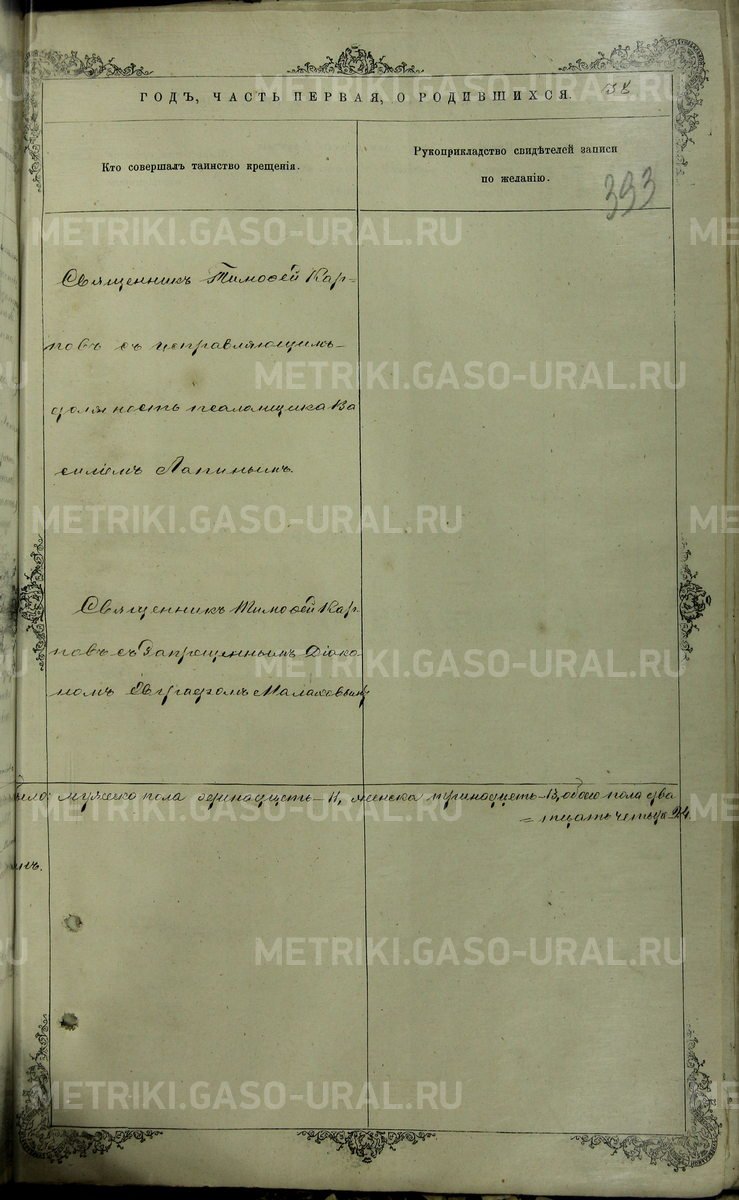 ГОДЪ, ЧАСТЬ ПЕРВАЯ, О РОДИВШИХСЯ.
Кто совершалъ таинство крещенія.
Рукоприкладство свидѣтелей записи
по желанію.
393
Священникъ Тимоѳей Кар-
повъ съ исправляющимъ
должность псаломщика Ва
силіемъ Лапинымъ.
Священникъ Тимоѳей Кар
повъ съ Запрещеннымъ Діако
номъ Евграфомъ Малаховымъ
мужеско пола 11, женска тринадцать 13, обоего пола два
= тцать четыре 24.
METRIKI.GASO-URAL.RU